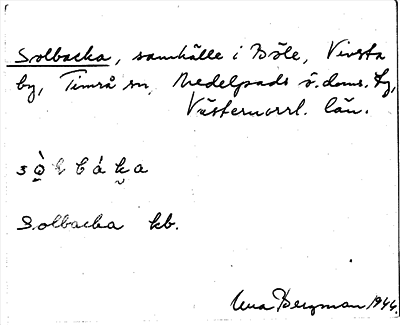 Solbacka, samhälle i Böle, Vivsta
by, Timrå sn, Medelpads ö. doms. tg,
Västernorrl. län.
Solbacka kb.
Bergman 1944.